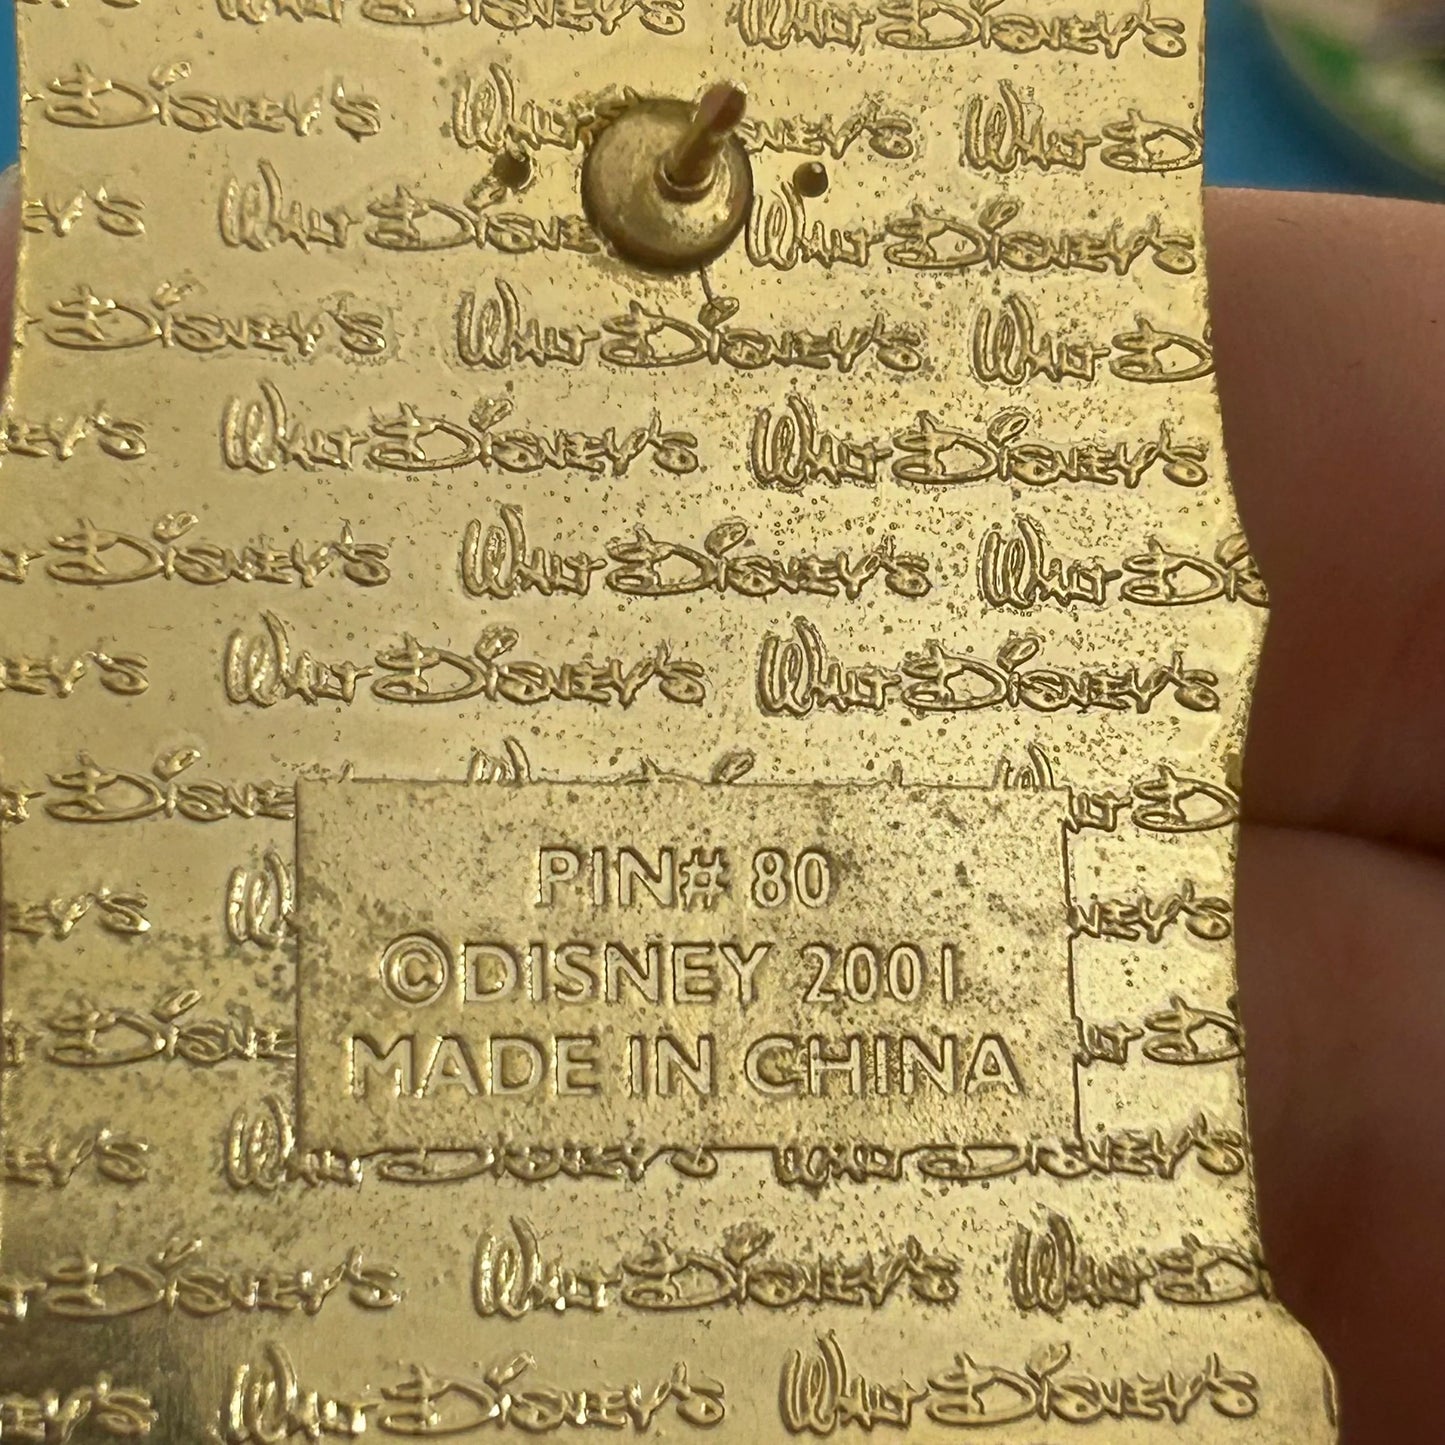 Walt Disney's Walt Disney's
Disney's Walt Disney's Walt
Walt Disney's Walt Disney's
Disney's Walt Disney's Walt
Walt Disney's Walt Disney's
Disney's Walt Disney's Walt
Walt Disney's Walt Disney's
PIN# 80
©DISNEY 2001
MADE IN CHINA
Walt Disney's Walt Disney's
Disney's Walt Disney's Walt
Walt Disney's Walt Disney's